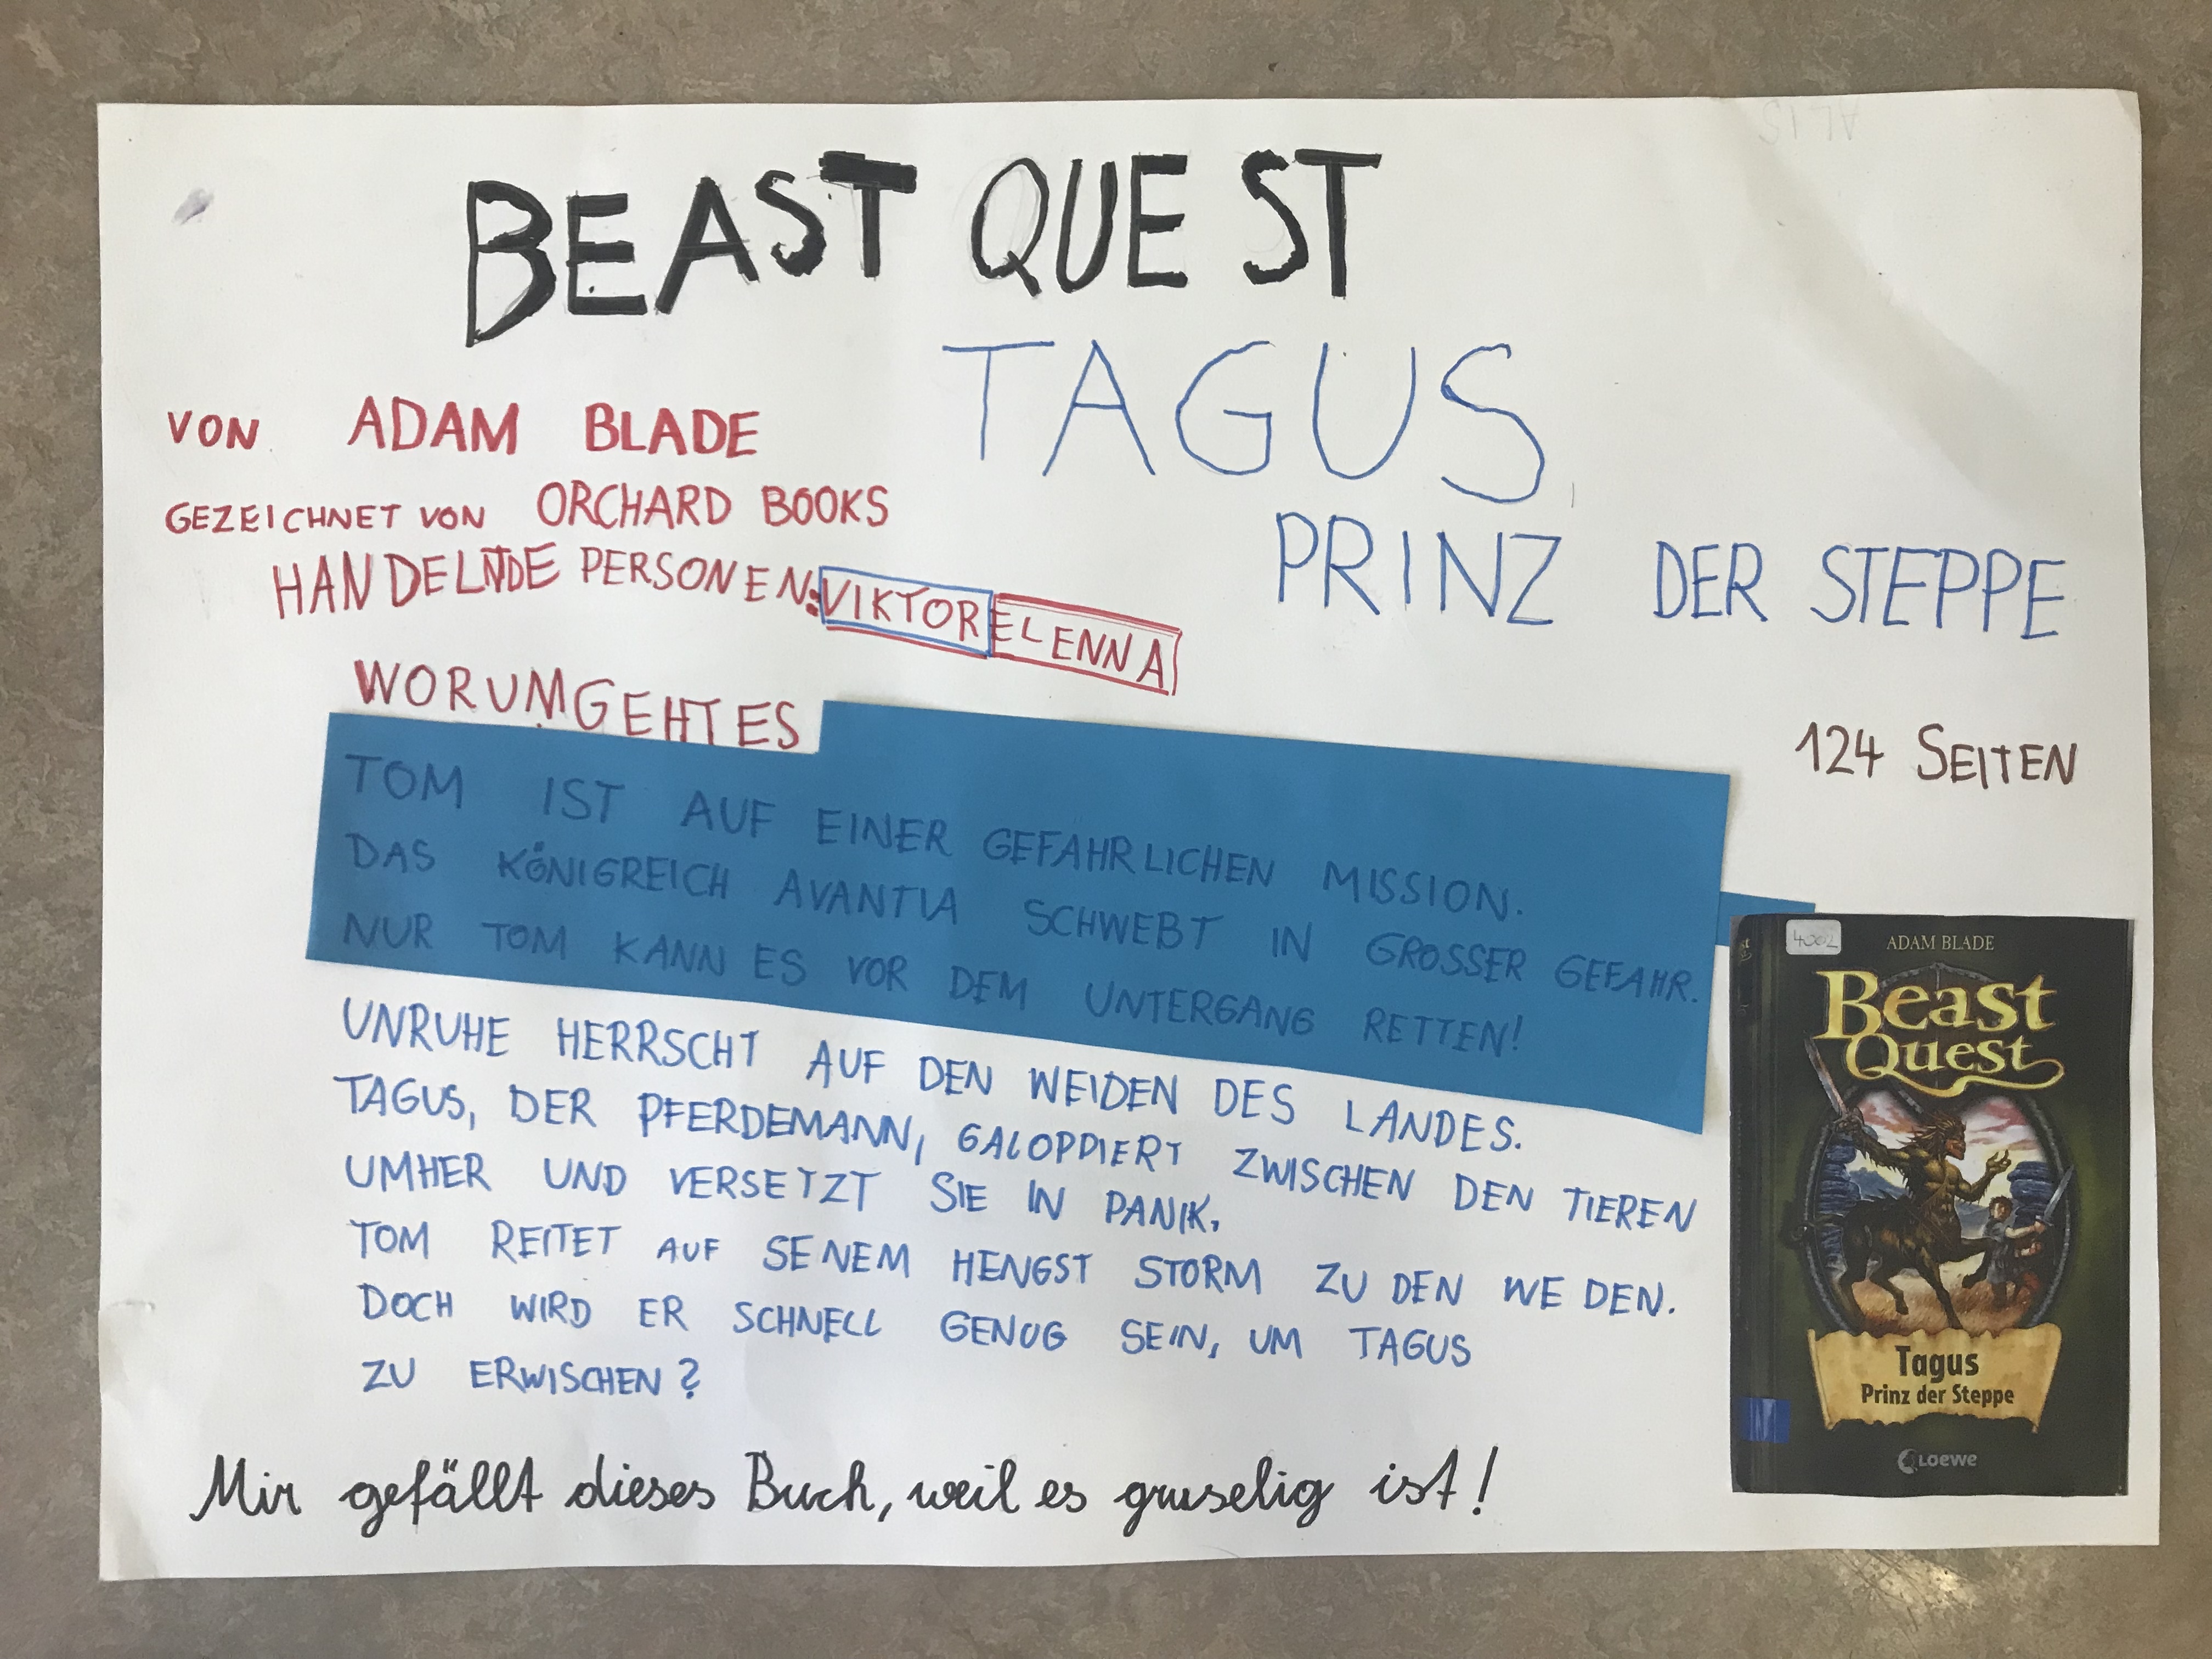 BEAST QUEST
TAGUS
PRINZ DER STEPPE
VON ADAM BLADE
GEZEICHNET VON ORCHARD BOOKS
HANDELNDE PERSONEN: VIKTOR ELENNA
WORUM GEHT ES
124 SEITEN
TOM IST AUF EINER GEFAHRLICHEN MISSION.
DAS KÖNIGREICH AVANTIA SCHWEBT IN GROSSER GEFAHR.
NUR TOM KANN ES VOR DEM UNTERGANG RETTEN!
UNRUHE HERRSCHT AUF DEN WEIDEN DES LANDES.
TAGUS, DER PFERDEMANN, GALOPPIERT ZWISCHEN DEN TIEREN
UMHER UND VERSETZT SIE IN PANIK.
TOM REITET AUF SEINEM HENGST STORM ZU DEN WEIDEN.
DOCH WIRD ER SCHNELL GENUG SEIN, UM TAGUS
ZU ERWISCHEN?
Mir gefällt dieses Buch, weil es gruselig ist!
4002
ADAM BLADE
Beast
Quest
Tagus
Prinz der Steppe
LOEWE